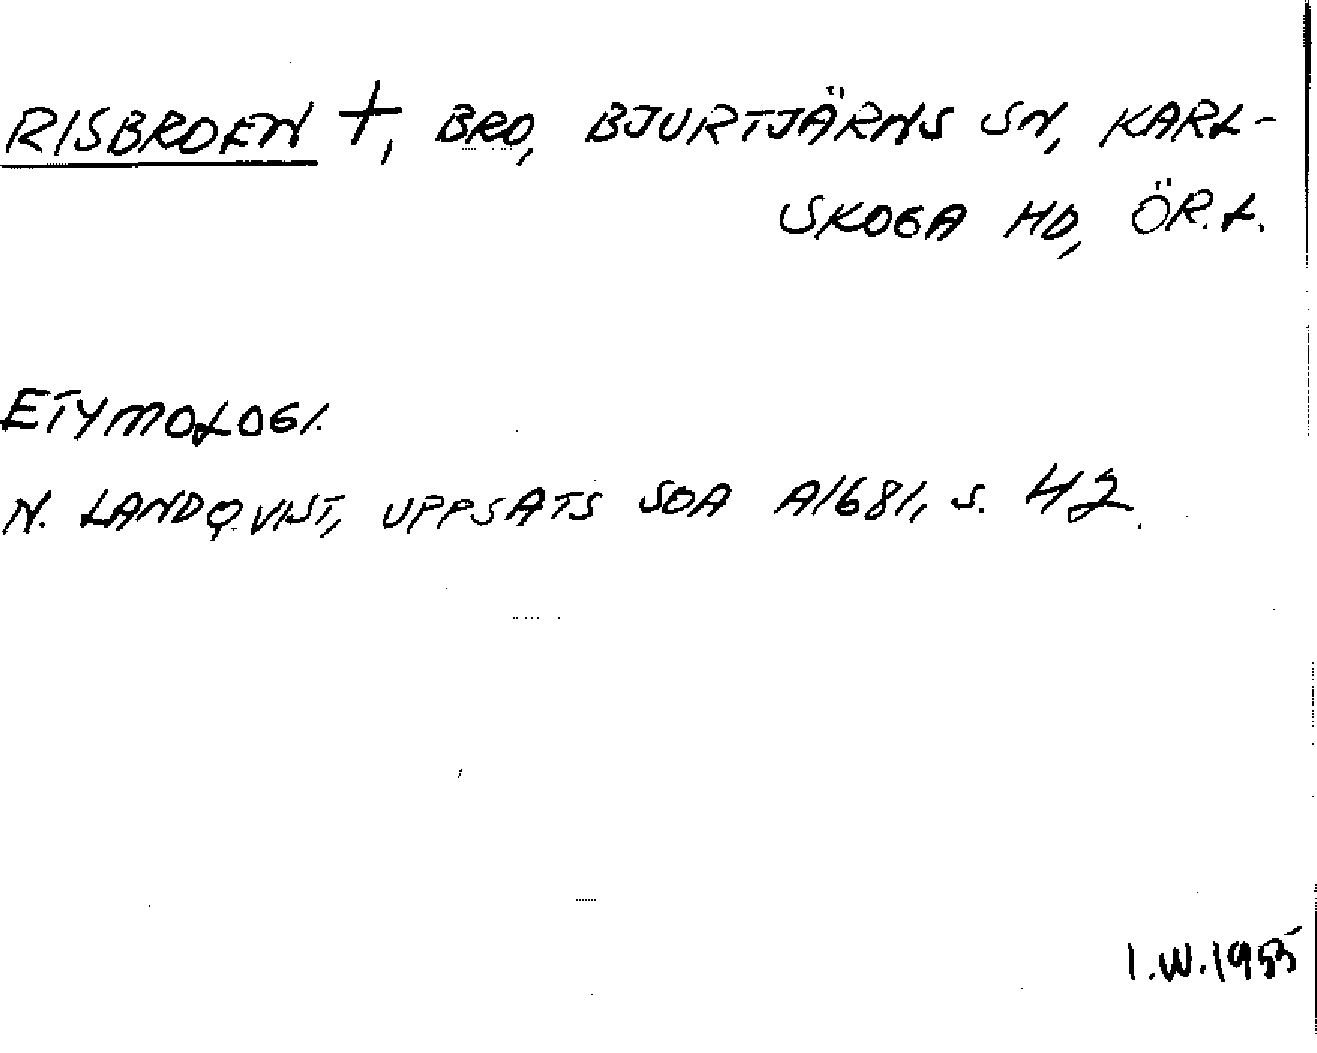 RISBROEN +, BRO, BJURTJÄRNS SN, KARL-
SKOGA HD, ÖR.L.
ETYMOLOGI.
N. LANDQVIST, UPPSATS SOA A1681, s. 42.
I.W.1955